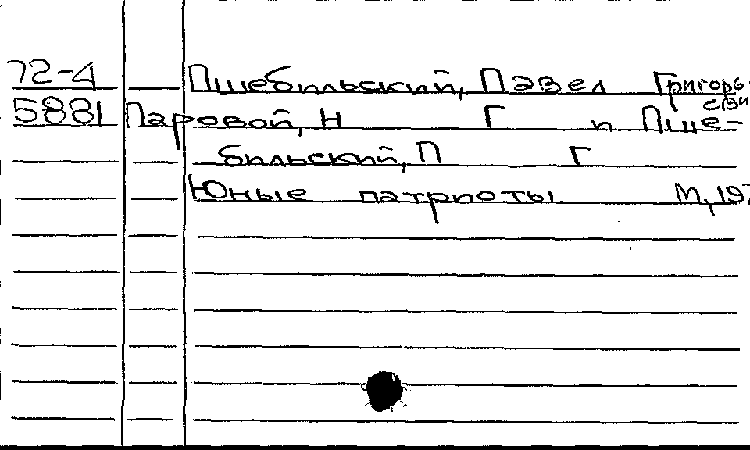 72-4 Пшебильский, Павел Григорь-
евич
5881 Паровой, Н Г и Пше-
бильский, П Г
Юные патриоты М, 197